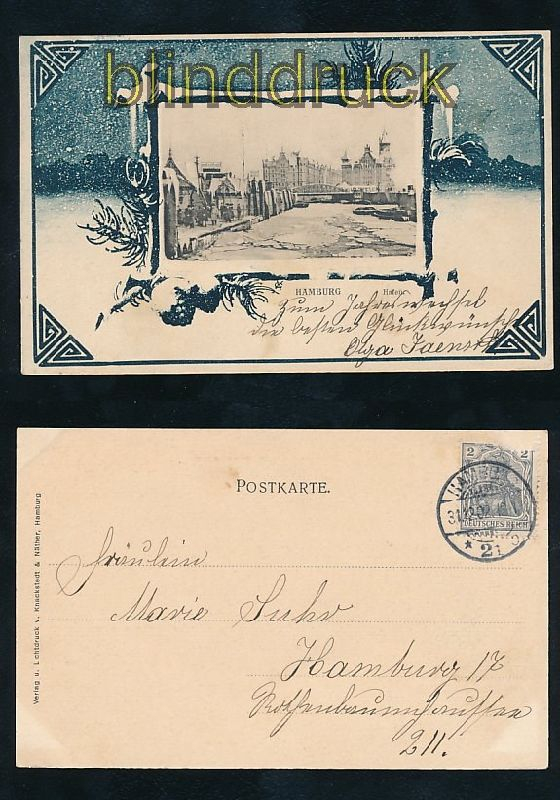 blinddruck
HAMBURG Hafen
Zum Jahreswechsel
die besten Glückwünsche
Olga
POSTKARTE.
2 2
HAMBURG
31.12.02
DEUTSCHES REICH
* 21
Fräulein
Marie Suhr
Hamburg 17
Rothenbaumchaussee
211.
Verlag u. Lichtdruck v. Knackstedt & Näther, Hamburg